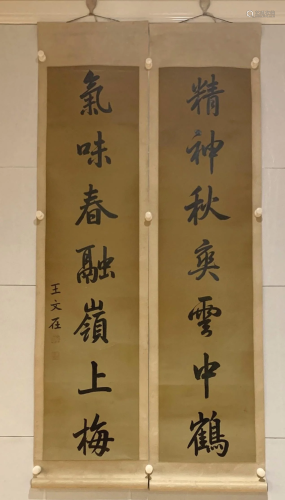 精神秋爽雲中鶴
氣味春融嶺上梅
王文在